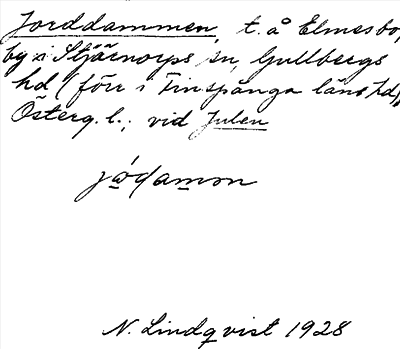 Jorddammen, t. å Elmesbo,
by i Stjärnorps sn, Gullbergs
hd (förr i Finspånga läns hd),
Österg. l.; vid Julen
jɷ́damɷn
N. Lindqvist 1928